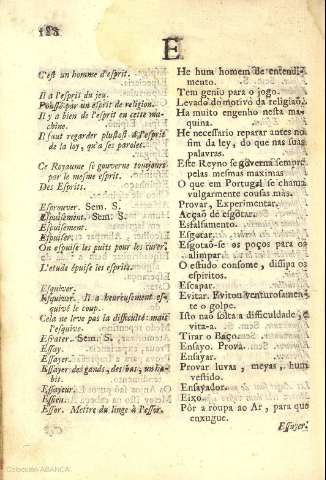 188
E
C'est un homme d'esprit.
Il a l'esprit du jeu.
Poussé par un esprit de religion.
Il y a bien de l'esprit en cette ma-
chine.
Il faut regarder plustost à l'esprit
de la loy, qu'a ses paroles.
Ce Royaume se gouverne toujours
par le mesme esprit.
Des Esprits.
Esprouver. Sem. S.
Espuisement, Sem. S.
Epuisement.
Epuiser.
On espuise les puits pour les curer.
L'etude épuise les esprits.
Esquiver.
Esquiver. Il a heureusement es-
quivé le coup.
Cela ne leve pas la difficulté: mais
l'esquive.
Esrater. Sem. S.
Essay.
Essayer.
Essayer des gands, des bas, un ha-
bit.
Essayeur.
Essieu.
Essor. Mettre du linge à l'essor.
He hum homem de entendi-
mento.
Tem genio para o jogo.
Levado do motivo da religiaõ.
Ha muito engenho nesta ma-
quina.
He necessario reparar antes no
fim da ley, do que nas suas
palavras.
Este Reyno se governa sempre
pelas mesmas maximas
O que em Portugal se chama
vulgarmente cousas más.
Provar, Experimentar.
Acçaõ de esgotar.
Esfalfamento.
Esgotar.
Esgotaõ-se os poços para os
alimpar.
O estudo consome, dissipa os
espiritos.
Escapar.
Evitar. Evitou venturosamen-
te o golpe.
Isto naõ solta a difficuldade, e
vita-a.
Tirar o Baço.
Ensayo. Prova.
Ensayar.
Provar luvas, meyas, hum
vestido.
Ensayador.
Eixo.
Pôr a roupa ao Ar, para que
enxugue.
Essuyer.
Colección ABANCA